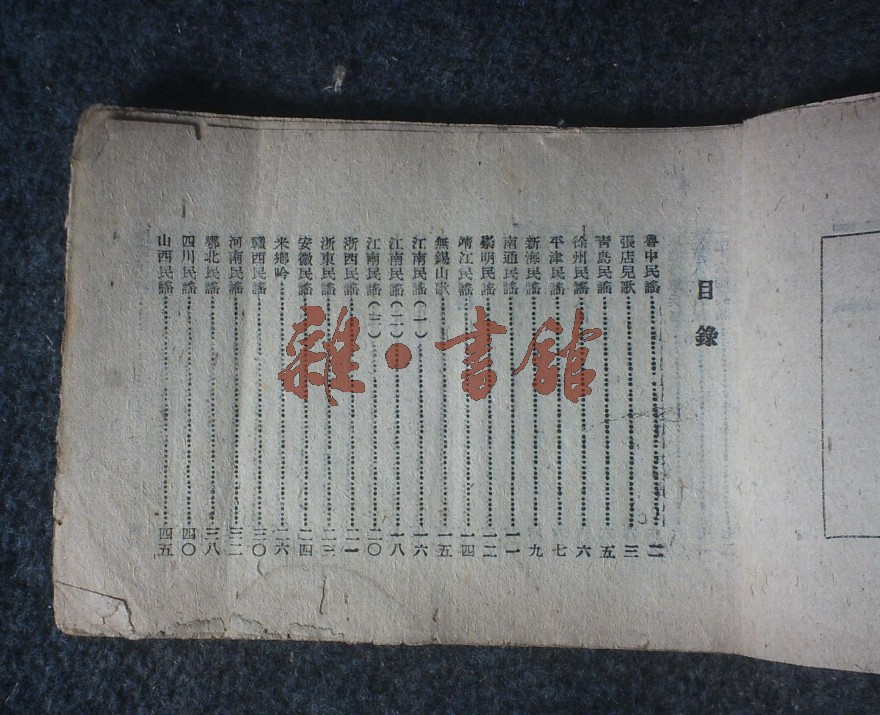 目錄
魯中民謠……二
張店兒歌……三
青島民謠……五
徐州民謠……六
平津民謠……七
新海民謠……九
南通民謠……一一
崇明民謠……一二
靖江民謠……一四
無錫山歌……一五
江南民謠(一)……一六
江南民謠(二)……一八
江南民謠(三)……二〇
浙西民謠……二一
浙東民謠……二三
安徽民謠……二四
来鄉吟……二六
贛西民謠……三〇
河南民謠……三二
鄂北民謠……三八
四川民謠……四〇
山西民謠……四五
雜·書館